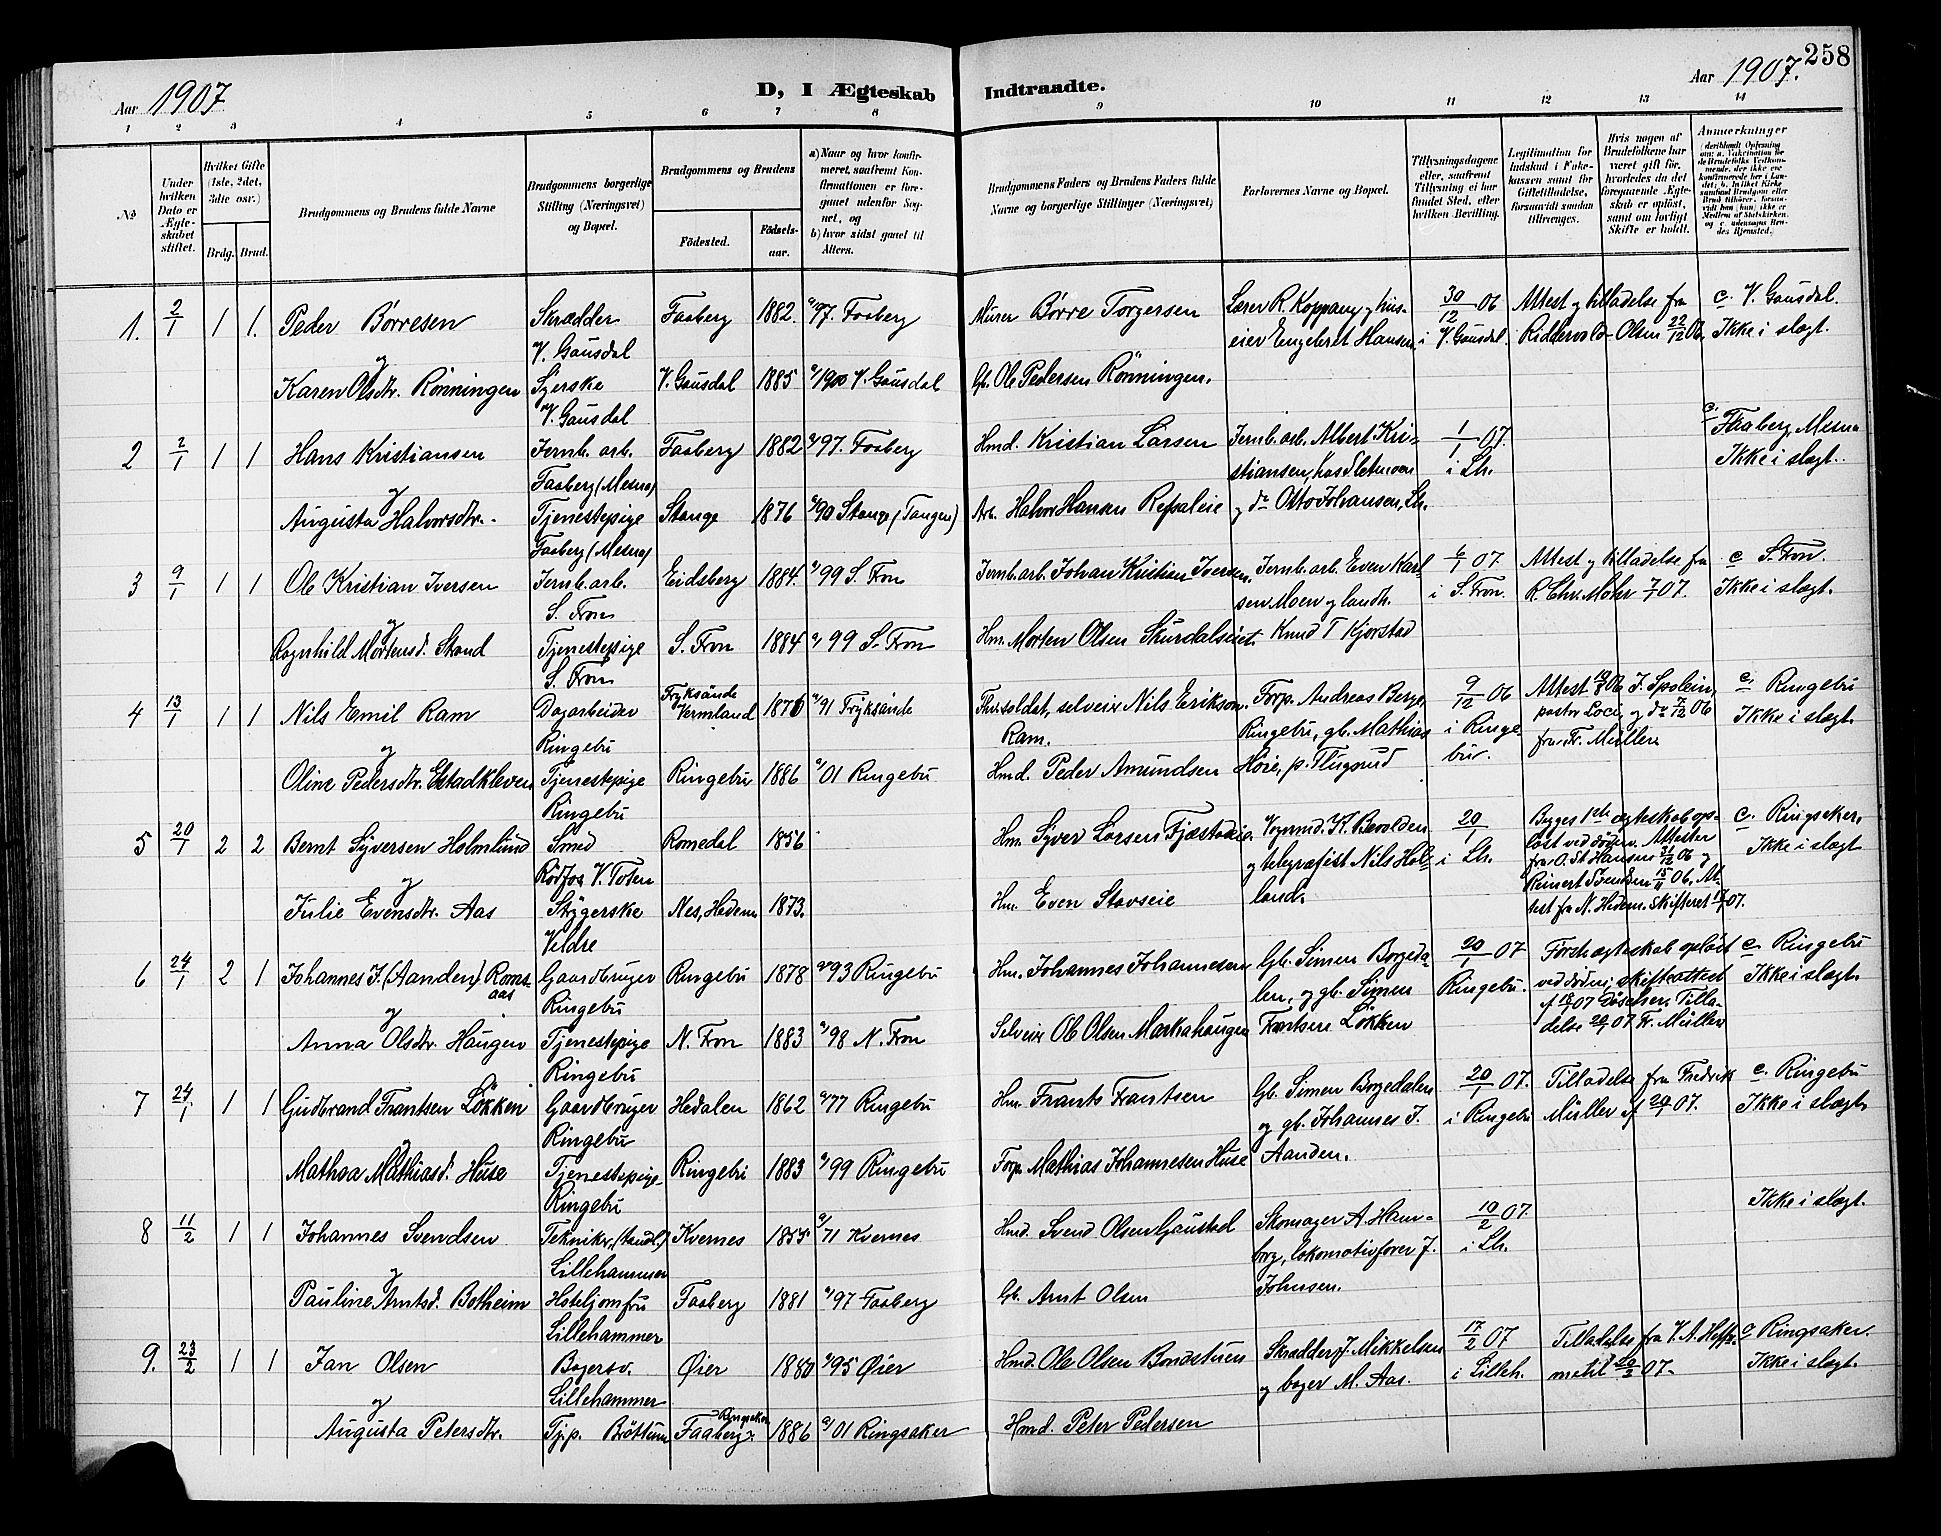 258
Aar 1907
D, I Ægteskab Indtraadte.
Aar 1907.
1 2 3 4 5 6 7 8 9 10 11 12 13 14
No
Under hvilken Dato er Ægteskabet stiftet.
Hvilket Gifte (1ste, 2det, 3die osv.)
Brdg. Brud.
Brudgommens og Brudens fulde Navne
Brudgommens borgerlige Stilling (Næringsvei) og Bopæl.
Brudgommens og Brudens
Födested.
Födselsaar.
a) Naar og hvor konfirmeret, saafremt Konfirmationen er foregaaet udenfor Sognet, og
b) hvor sidst gaaet til Alters.
Brudgommens Faders og Brudens Faders fulde Navne og borgerlige Stillinger (Næringsvei)
Forlovernes Navne og Bopæl.
Tillysningsdagene eller, saafremt Tillysning ei har fundet Sted, efter hvilken Bevilling.
Legitimation for Indskud i Enkekassen samt for Giftetilladelse, forsaavidt saadan tiltrænges.
Hvis nogen af Brudefolkene har været gift för, hvorledes da det foregaaende Ægteskab er oplöst, samt om lovligt Skifte er holdt.
Anmerkninger
1. 2/1 1 1. Peder Børresen Skrædder V. Gausdal Faaberg 1882. 97. Faaberg Murer Børre Torgersen Lærer R. Koppang og huseier Engebret Hansen, 30/12 06 i V. Gausdal. Attest og tilladelse fra Riddervold-Olsen 22/12 06. c. V. Gausdal. Ikke i slægt.
og
Karen Olsdtr. Rønningen Syerske V. Gausdal V. Gausdal 1885 1900 V. Gausdal Gb. Ole Pedersen Rønningen.
2 2/1 1 1 Hans Kristiansen Jernb. arb. Faaberg (Mesna) Faaberg 1882 97. Faaberg Hmd. Kristian Larsen Jernb. arb. Albert Kristiansen, og do Otto Johansen, Lh. 1/1 07. i Lh. c. Faaberg, Mesna Ikke i slægt.
og
Augusta Halvorsdtr. Tjenestepige Faaberg (Mesna) Stange 1876 90 Stange (Tangen) Arb. Halvor Hansen Refsaleie
3 9/1 1 1 Ole Kristian Iversen Jernb. arb. S. Fron Eidsberg 1884. 99 S. Fron Jernb. arb. Johan Kristian Iversen. Jernb. arb. Even Karlsen Moen og landh. Knud T Kjorstad 6/1 07. i S. Fron. Attest og tilladelse fra R. Chr. Mohr 7/1 07. c S. Fron. Ikke i slægt.
og
Ragnhild Mortensd. Strand Tjenestepige S. Fron S. Fron 1884 99 S. Fron Hm. Morten Olsen Skurdalseiet.
4 13/1 1 1 Nils Emil Ram Dagarbeider Ringebu Fryksände Vermland 1876 91 Fryksände selveier Nils Erikson Ram. Forp. Andreas Berge, Ringebu, gb. Mathias Høie, p. Flugsrud 9/12 06 i Ringebu. pastor loci, og do 06 fra Fr. Müller c. Ringebu Ikke i slægt.
og
Oline Pedersdtr. Ekstadkleven Tjenestepige Ringebu Ringebu 1886 01 Ringebu Hmd. Peder Amundsen
5 20/1 2 2 Bernt Syversen Holmlund Smed Rødfos V. Toten Romedal 1856 Hm. Syver Larsen Fjæstadeie. Vognmd. K. Bevolden og telegrafist Nils Holland. 20/1 i Lh. Begges 1ste ægteskab opløst ved døden. Attester fra O. St. Hansen 31/12 06 og Reinert Svendsen 15/11 06. Attest fra N. Hedem. skifteret 07. c. Ringsaker. Ikke i slægt
og
Julie Evensdtr. Aas Strygerske Veldre Nes, Hedem. 1873. Hm. Even Stavseie
6 24/1 2 1 Johannes J. (Aanden) Romsaas Gaardbruger Ringebu Ringebu 1878 93 Ringebu Hm. Johannes Johannesen Gb. Simen Borgedalen, og gb. Simen Frantsen Løkken 20/1 07 Ringebu. Første ægteskab opløst ved døden; skifteattest af 07 Tilladelse 20/1 07 Fr. Müller c. Ringebu Ikke i slægt.
og
Anna Olsdtr. Haugen Tjenestepige Ringebu N. Fron 1883 98 N. Fron Selveier Ole Olsen Markahaugen
7 24/1. 1 1 Gudbrand Frantsen Løkken Gaardbruger Ringebu Hedalen 1862 77 Ringebu Hm. Frants Frantsen Gb. Simen Borgedalen og gb. Johannes J. Aanden. 20/1 07. i Ringebu Tilladelse fra Fredrik Müller af 20/1 07. c. Ringebu Ikke i slægt.
og
Mathea Mathiasd. Huse Tjenestepige. Ringebu Ringebu 1883 99 Ringebu Forp. Mathias Johannesen Huse
8 11/2 1 1 Johannes Svendsen Tekniker, Lillehammer Kvernes 1855 71 Kvernes Hmd. Svend Olsen Gaustad Skomager A. Hamborg, lokomotivfører J. Johnsen. 10/2 07. i Lh. Ikke i slægt.
og
Pauline Arntsd. Botheim Hoteljomfru Lillehammer Faaberg 1881 97 Faaberg Gb. Arnt Olsen
9. 23/2 1 1 Jan Olsen Bagersv. Lillehammer Øier 1880 95 Øier Hmd. Ole Olsen Bondstuen Skrædder J. Mikkelsen og bager M. Aas. 17/2 07 i Lilleh. Tilladelse fra 07. c Ringsaker. Ikke i slægt.
og
Augusta Petersdtr. Tjp. Brøttum Faaberg. Ringsaker 1886 01 Ringsaker Hmd. Peter Pedersen